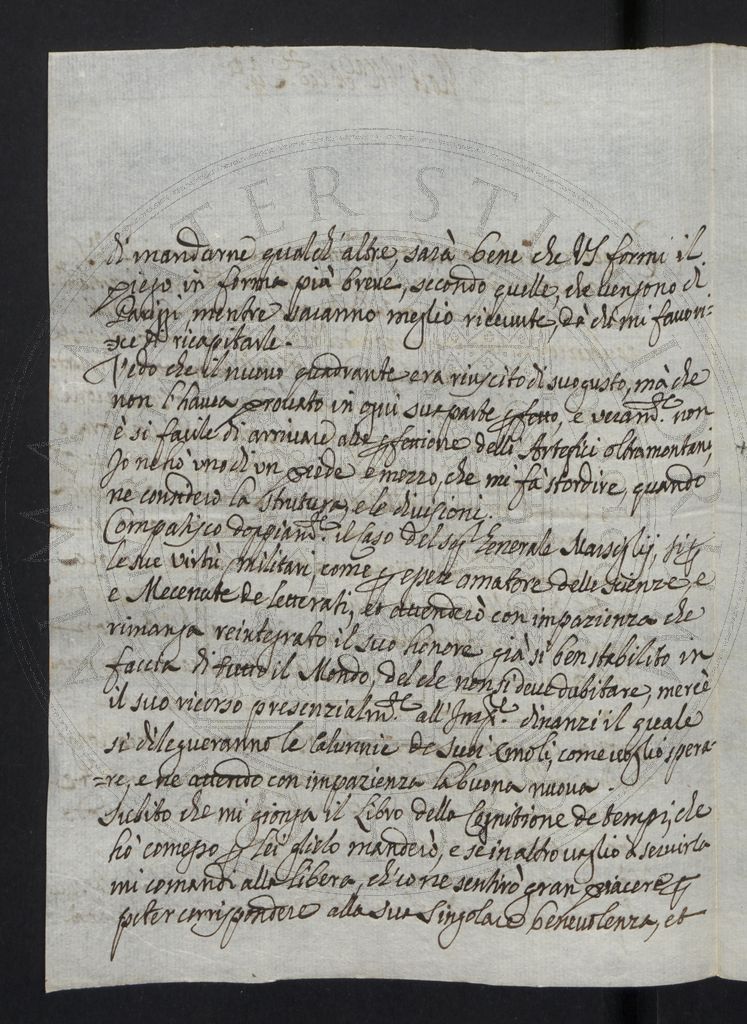 di mandarne qualch'altre, sarà bene che VS formi il
piego in forma più breve, secondo quelle, che vengono di
Pariggi mentre saranno meglio ricevute, da chi mi favori=
=sce di ricapitarle.
Vedo che il nuovo quadrante era riuscito di suo gusto, mà che
non l'havea provato in ogni sua parte perfetto, e veram.te non
è si facile di arrivare alla perfettione delli Artefici oltramontani,
Io ne hò uno di un piede e mezzo, che mi fà stordire, quando
ne considero la strutura, e le divisioni.
Compatisco doppiam.te il caso del sig.r Generale Marsiglij, si per
le sue virtù militari, come per esser amatore delle scienze e
e Mecenate de letterati, et attenderò con impazienza che
rimanga reintegrato il suo honore già si ben stabilito in
faccia di tutto il Mondo, del che non si deve dubitare, mercè
il suo ricorso presenzialm.te all'Imp.re dinanzi il quale
si dilegueranno le calunnie de suoi emoli, come voglio spera=
=re, e ne attendo con impazienza la buona nuova.
Subito che mi gionga il Libro della Cognitione de tempi, che
hò comesso per lei glielo manderò, e se in altro vaglio à servirla
mi comandi alla libera, ch'io ne sentirò gran piacere per
poter corrispondere alla sua singolare benevolenza, et